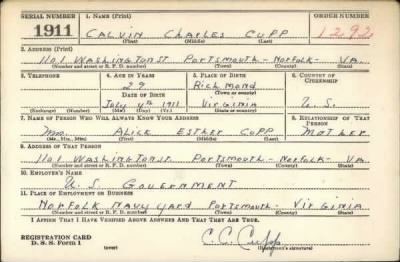 SERIAL NUMBER 1. NAME (Print) ORDER NUMBER
1911 CALVIN CHARLES CUPP 1292
(First) (Middle) (Last)
2. ADDRESS (Print)
1101 WASHINGTON ST PORTSMOUTH - NORFOLK - VA.
(Number and street or R. F. D. number) (Town) (County) (State)
3. TELEPHONE 4. AGE IN YEARS 5. PLACE OF BIRTH 6. COUNTRY OF CITIZENSHIP
29 RICHMOND
DATE OF BIRTH (Town or county)
July 4th 1911 VIRGINIA U. S.
(Exchange) (Number) (Mo.) (Day) (Yr.) (State or country)
7. NAME OF PERSON WHO WILL ALWAYS KNOW YOUR ADDRESS 8. RELATIONSHIP OF THAT PERSON
Mrs. ALICE ESTHER CUPP MOTHER
(Mr., Mrs., Miss) (First) (Middle) (Last)
9. ADDRESS OF THAT PERSON
1101 WASHINGTON ST. PORTSMOUTH - NORFOLK - VA
(Number and street or R. F. D. number) (Town) (County) (State)
10. EMPLOYER'S NAME
U. S. GOVERNMENT
11. PLACE OF EMPLOYMENT OR BUSINESS
NORFOLK NAVY YARD PORTSMOUTH - VIRGINIA
(Number and street or R. F. D. number) (Town) (County) (State)
I AFFIRM THAT I HAVE VERIFIED ABOVE ANSWERS AND THAT THEY ARE TRUE.
REGISTRATION CARD
D. S. S. Form 1 (over) C. C. Cupp
(Registrant's signature)